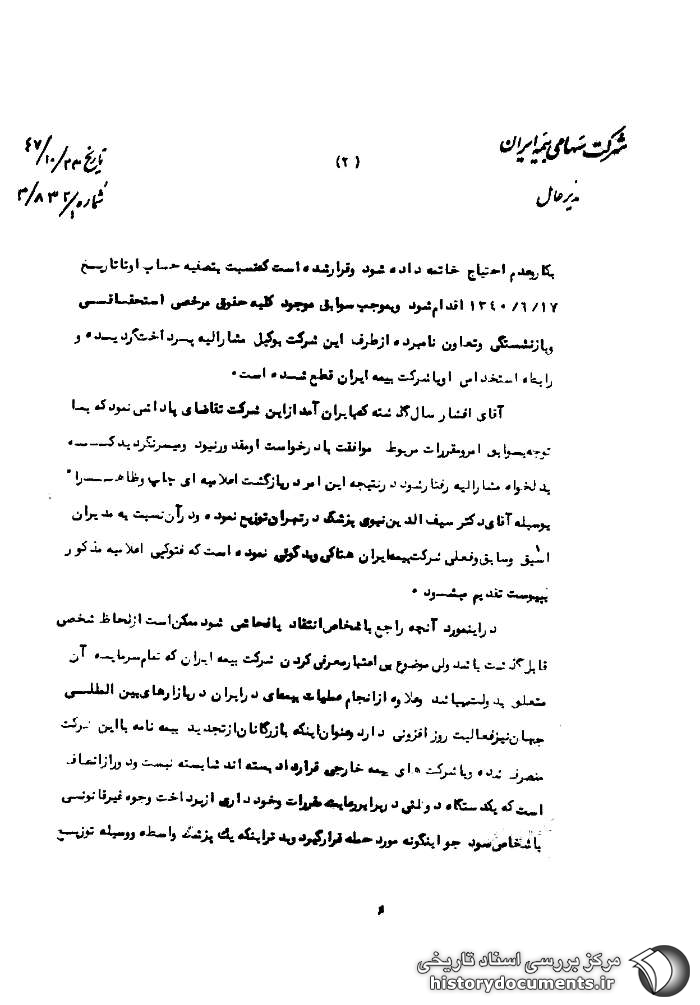 شرکت سهامی بیمه ایران
مدیر عامل
(٢)
تاریخ ٤٧/١٠/٢٣
شماره ٣/٨٣٢/١
بکار بعدم احتیاج خاتمه داده شود وقرارشده است کهنسبت بتصفیه حساب اوتا تاریخ
١٣٤٠/٦/١٧ اقدام شود وبموجب سوابق موجود کلیه حقوق مرخصی استحقاقی
وبازنشستگی وتعاون نامبرده ازطرف این شرکت بوکیل مشارالیه پرداختگردیده و
رابطه استخدامی اوباشرکت بیمه ایران قطع شده است٠
آقای افشار سال گذشته کهبایران آمد ازاین شرکت تقاضای پاداشی نمود که با
توجهبسوابق امرومقررات مربوط موافقت بادرخواست اومقدورنبود ومیسرنگردید که
بدلخواه مشارالیه رفتارشود درنتیجه این امر دربازگشت اعلامیه ای چاپ وظاهراً
بوسیله آقای دکتر سیف الدین نبوی پزشک درتهران توزیع نموده ودرآن نسبت به مدیران
اسبق وسابق وفعلی شرکت بیمه ایران هتاکی وبدگوئی نموده است که فتوکپی اعلامیه مذکور
بپیوست تقدیم میشود ٠
دراینمورد آنچه راجع باشخاص انتقاد یافحاشی شود ممکن است ازلحاظ شخصی
قابل گذشت باشد ولی موضوع بی اعتبارمعرفی کردن شرکت بیمه ایران که تمام سرمایه آن
متعلق بدولت میباشد وعلاوه ازانجام عملیات بیمه ای درایران دربازارهای بین المللی
جهان نیزفعالیت روز افزونی دارد وعنوان اینکه بازرگانان ازتجدید بیمه نامه بااین شرکت
منصرف شده وباشرکت های بیمه خارجی قرارداد بسته اند شایسته نیست ودورازانصاف
است که یکدستگاه دولتی دربرابررعایت مقررات وخودداری ازپرداخت وجوه غیرقانونی
باشخاص سود جو اینگونه مورد حمله قرارگیرد وبدتراینکه یك پزشک واسطه ووسیله توزیع
مرکز بررسی اسناد تاریخی
historydocuments.ir